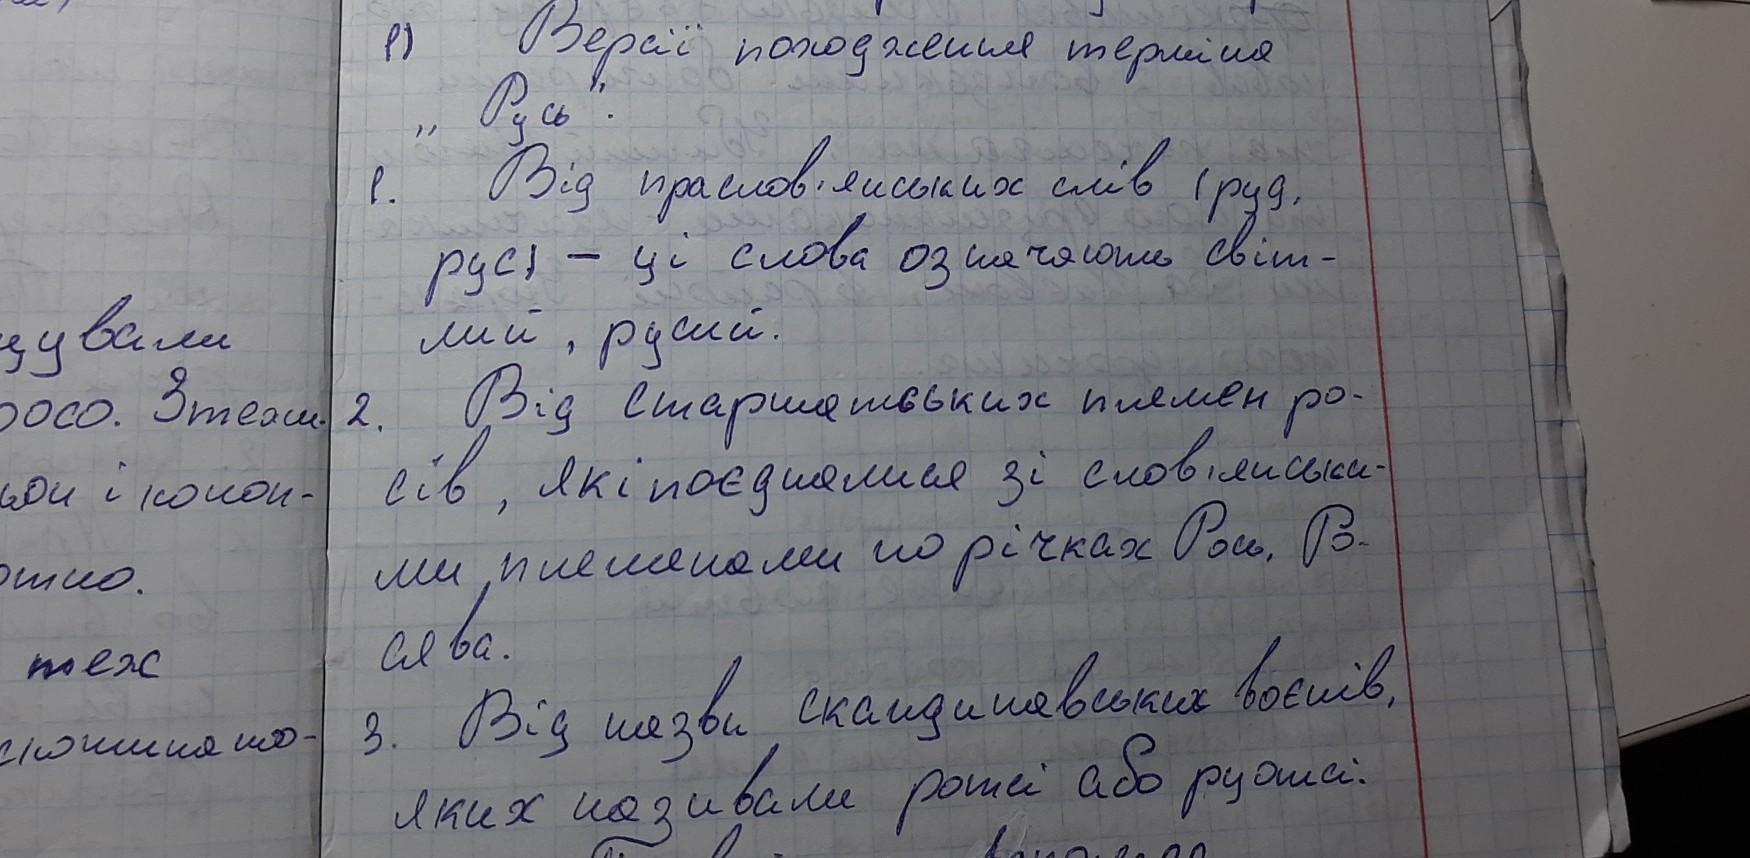 цували
осо. Зтехн.
ьон і коноп-
отно.
теж
1) Версії походження терміна
„Русь".
1. Від праслов'янських слів (руд,
рус) – ці слова означають світ-
лий, русий.
2. Від старматських племен ро-
сів, які поєдналися зі слов'янськи-
ми племенами по річках Рось, Ро-
сява.
3. Від назви скандинавських воєнів,
яких називали ротсі або руотсі.